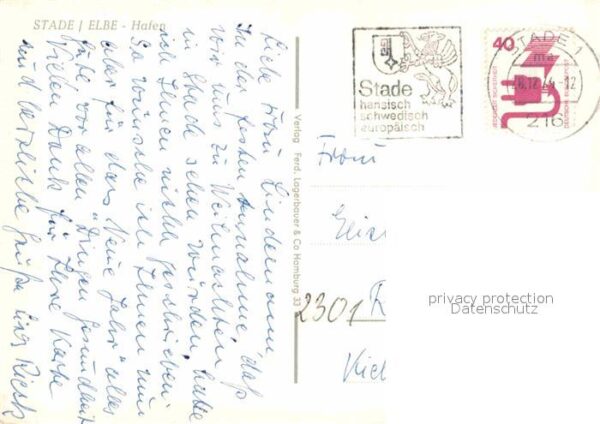 STADE / ELBE - Hafen
Liebe Frau Lindemann,
In der festen Annahme, daß
wir uns zu Weihnachten
in Stade sehen würden, habe
ich Ihnen nicht geschrieben.
So wünsche ich Ihnen nun
aber für das Neue Jahr alles
Gute vor allen Dingen Gesundheit
Vielen Dank für Ihre Karte
und herzliche Grüße Ihre
Verlag Ferd. Lagerbauer & Co Hamburg 33
Stade
hansisch
schwedisch
europäisch
STADE 1
ma
-12
216
40
JEDERZEIT SICHERHEIT
DEUTSCHE BUNDESPOST
Frau
2301
Kiel
privacy protection
Datenschutz